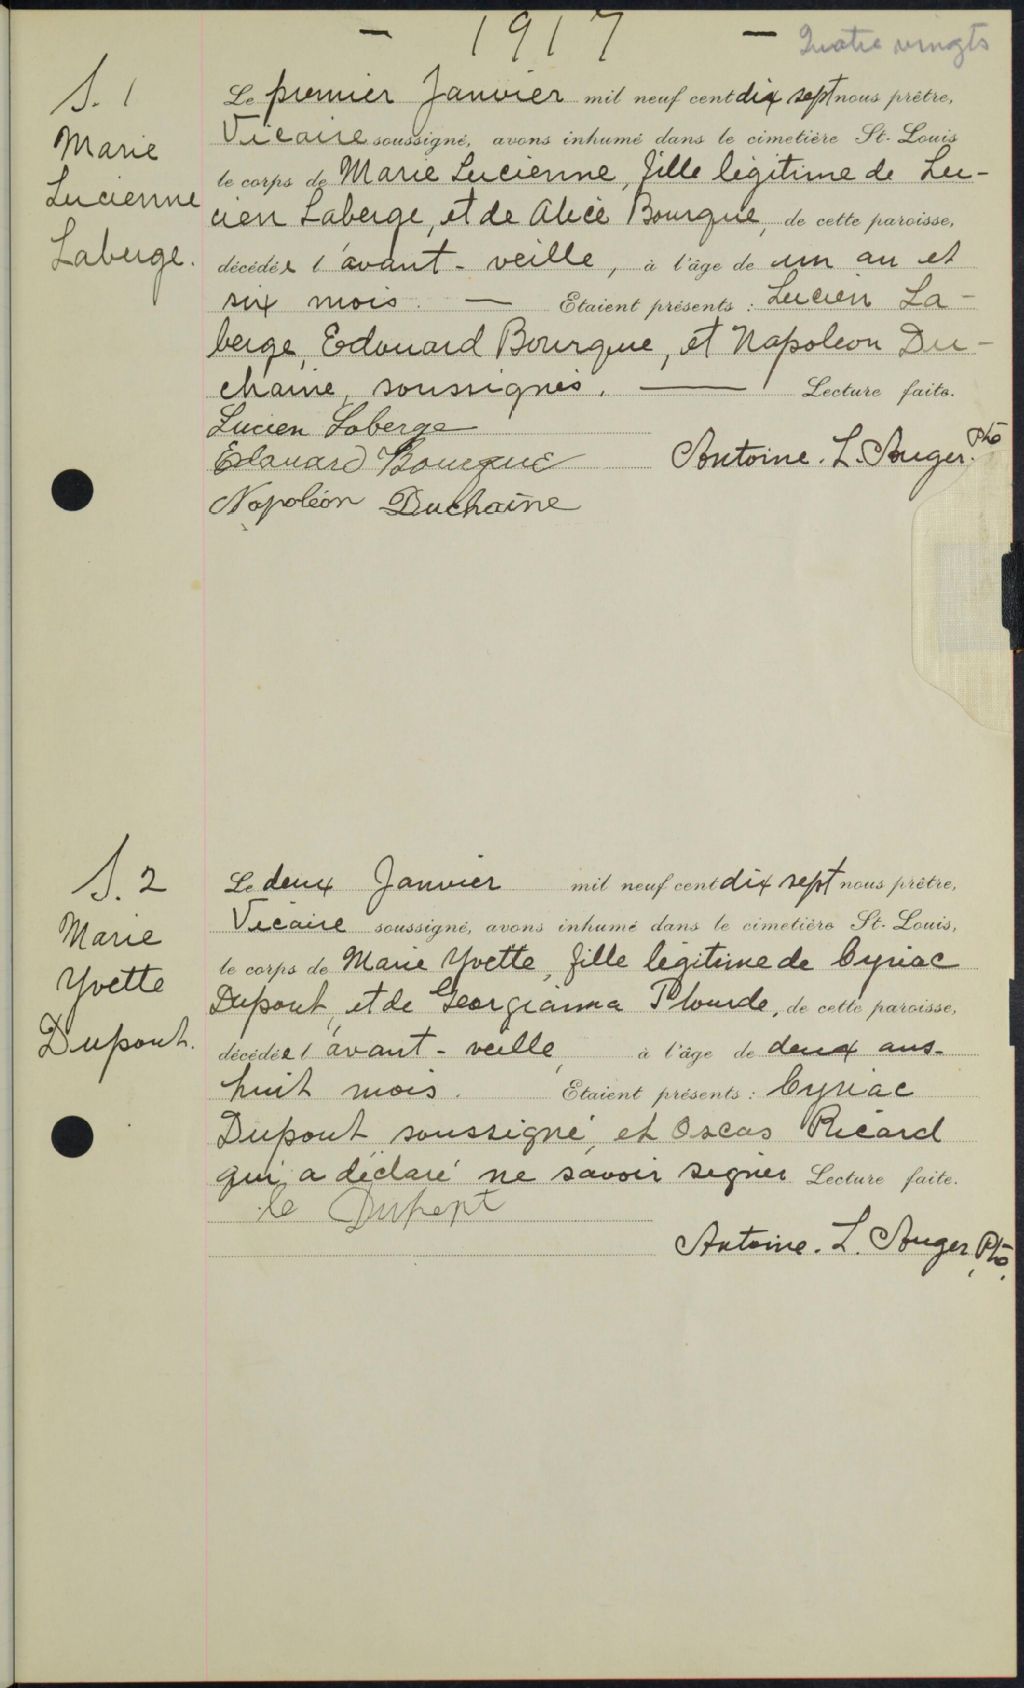 - 1917 -
Quatre vingts
S. 1
Marie
Lucienne
Laberge.
Le premier Janvier mil neuf cent dix sept nous prêtre,
Vicaire soussigné, avons inhumé dans le cimetière St-Louis
le corps de Marie Lucienne, fille légitime de Lu-
cien Laberge, et de Alice Bourque, de cette paroisse,
décédée l'avant-veille, à l'âge de un an et
six mois. — Etaient présents : Lucien La-
berge, Edouard Bourque, et Napoleon Du-
chaine, soussignés. — Lecture faite.
Lucien Laberge
Edouard Bourque
Antoine. L. Auger. Ptr
Napoléon Duchaine
S. 2
Marie
Yvette
Dupont.
Le deux Janvier mil neuf cent dix sept nous prêtre,
Vicaire soussigné, avons inhumé dans le cimetière St-Louis,
le corps de Marie Yvette, fille légitime de Cyriac
Dupont, et de Georgianna Plourde, de cette paroisse,
décédée l'avant-veille, à l'âge de deux ans-
huit mois. Etaient présents : Cyriac
Dupont soussigné, et Oscas Ricard
qui a déclaré ne savoir signer Lecture faite.
Dupont
Antoine. L. Auger, Ptr.